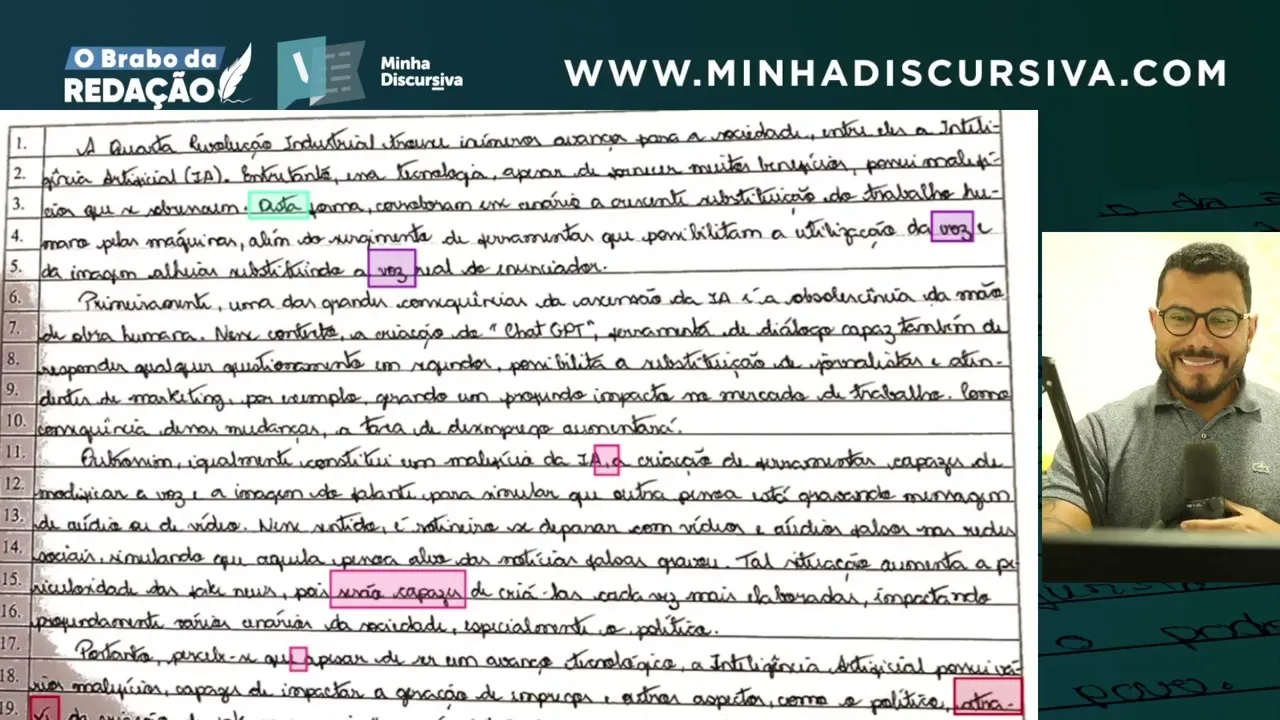 O Brabo da
REDAÇÃO
Minha
Discursiva
WWW.MINHADISCURSIVA.COM
1. A Quarta Revolução Industrial trouxe inúmeros avanços para a sociedade, entre eles a Inteli-
2. gência Artificial (IA). Entretanto, essa tecnologia, apesar de fornecer muitos benefícios, possui malefí-
3. cios que se sobressaem. Dista forma, corroboram esse cenário a crescente substituição do trabalho hu-
4. mano pelas máquinas, além do surgimento de ferramentas que possibilitam a utilização da voz e
5. da imagem alheias substituindo a voz real do enunciador.
6. Primeiramente, uma das grandes consequências da ascensão da IA é a obsolescência da mão
7. de obra humana. Nesse contexto, a criação do "Chat GPT", ferramenta de diálogo capaz também de
8. responder qualquer questionamento em segundos, possibilita a substituição de jornalistas e aten-
9. dentes de marketing, por exemplo, grando um profundo impacto no mercado de trabalho. Como
10. consequência dessas mudanças, a taxa de desemprego aumentará.
11. Outrossim, igualmente constitui um malefício da IA, a criação de ferramentas capazes de
12. modificar a voz e a imagem do falante, para simular que outra pessoa está gravando mensagem
13. de aúdio ou de vídeo. Nesse sentido, é rotineiro se deparar com vídeos e aúdios falsos nas redes
14. sociais, simulando que aquela pessoa alvo das notícias falsas gravou. Tal situação aumenta a pe-
15. riculosidade das fake news, pois serão capazes de criá-las cada vez mais elaboradas, impactando
16. profundamente vários cenários da sociedade, especialmente o político.
17. Portanto, percebe-se que apesar de ser um avanço tecnológico, a Inteligência Artificial possui vá-
18. rios malefícios, capazes de impactar a geração de empregos e outros aspectos, como o político, atra-
19. vés da criação de